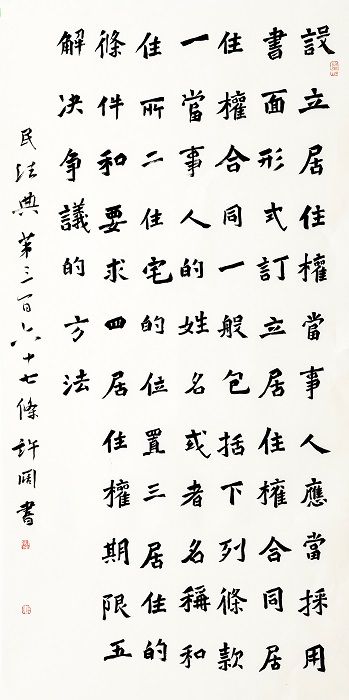 設立居住權當事人應當採用
書面形式訂立居住權合同居
住權合同一般包括下列條款
一當事人的姓名或者名稱和
住所二住宅的位置三居住的
條件和要求四居住權期限五
解决争議的方法
民法典第三百六十七條 許書